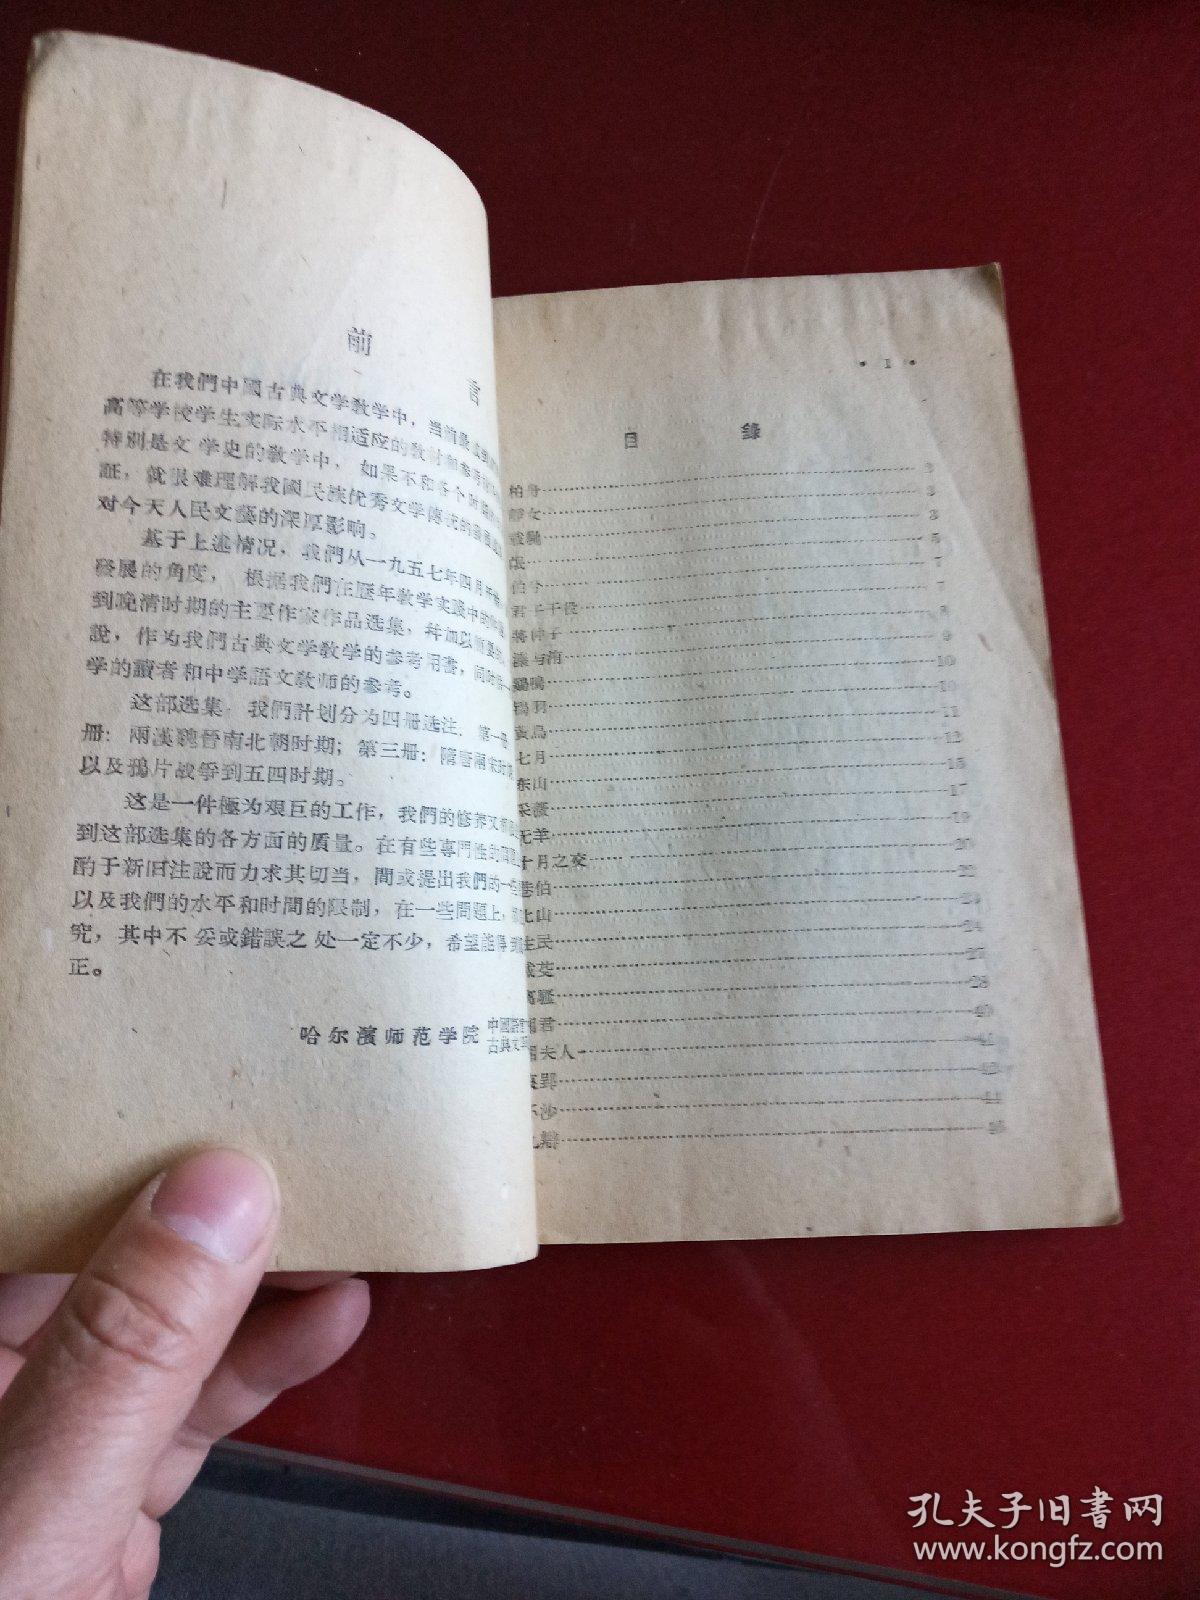 前言
在我們中國古典文学敎学中，当前最
高等学校学生实际水平相适应的敎材和参考
特別是文学史的敎学中，如果不和各个时
証，就很难理解我國民族优秀文学傳統的
对今天人民文藝的深厚影响。
基于上述情况，我們从一九五七年四月开
發展的角度，根据我們在歷年敎学实踐中的
到晚清时期的主要作家作品选集，幷加以簡要的
說，作为我們古典文学敎学的参考用書，同时
学的讀者和中学語文敎师的参考。
这部选集，我們計划分为四册选注，第一册
册：兩漢魏晉南北朝时期；第三册：隋唐兩宋时
以及鴉片战爭到五四时期。
这是一件極为艰巨的工作，我們的修养又
到这部选集的各方面的质量。在有些專門性的問
酌于新旧注說而力求其切当，間或提出我們的一些
以及我們的水平和时間的限制，在一些問題上，
究，其中不妥或錯誤之处一定不少，希望能得到
正。
哈尔濱师范学院
中國語言
古典文学
• 1 •
目錄
柏舟
靜女 3
載馳 3
氓 5
伯兮 7
君子于役 7
將仲子 8
溱与洧 9
鷄鳴 10
鴇羽 10
黃鳥 11
七月 12
东山 15
采薇 17
无羊 19
十月之交 20
巷伯 22
北山 23
生民 24
27
离騷 28
湘君 40
湘夫人
哀郢
怀沙
九辯
孔夫子旧書网
www.kongfz.com